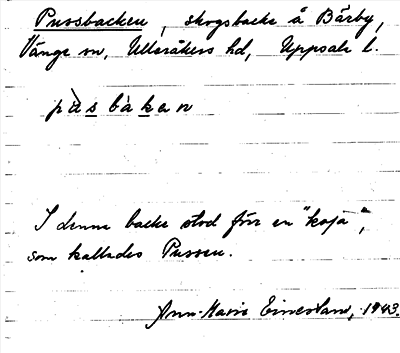 Pussbacken, skogsbacke å Bärby,
Vänge sn, Ulleråkers hd, Uppsala l.
pùsbàkan
I denna backe stod förr en "koja",
som kallades Pussen.
Ann-Marie 1943.